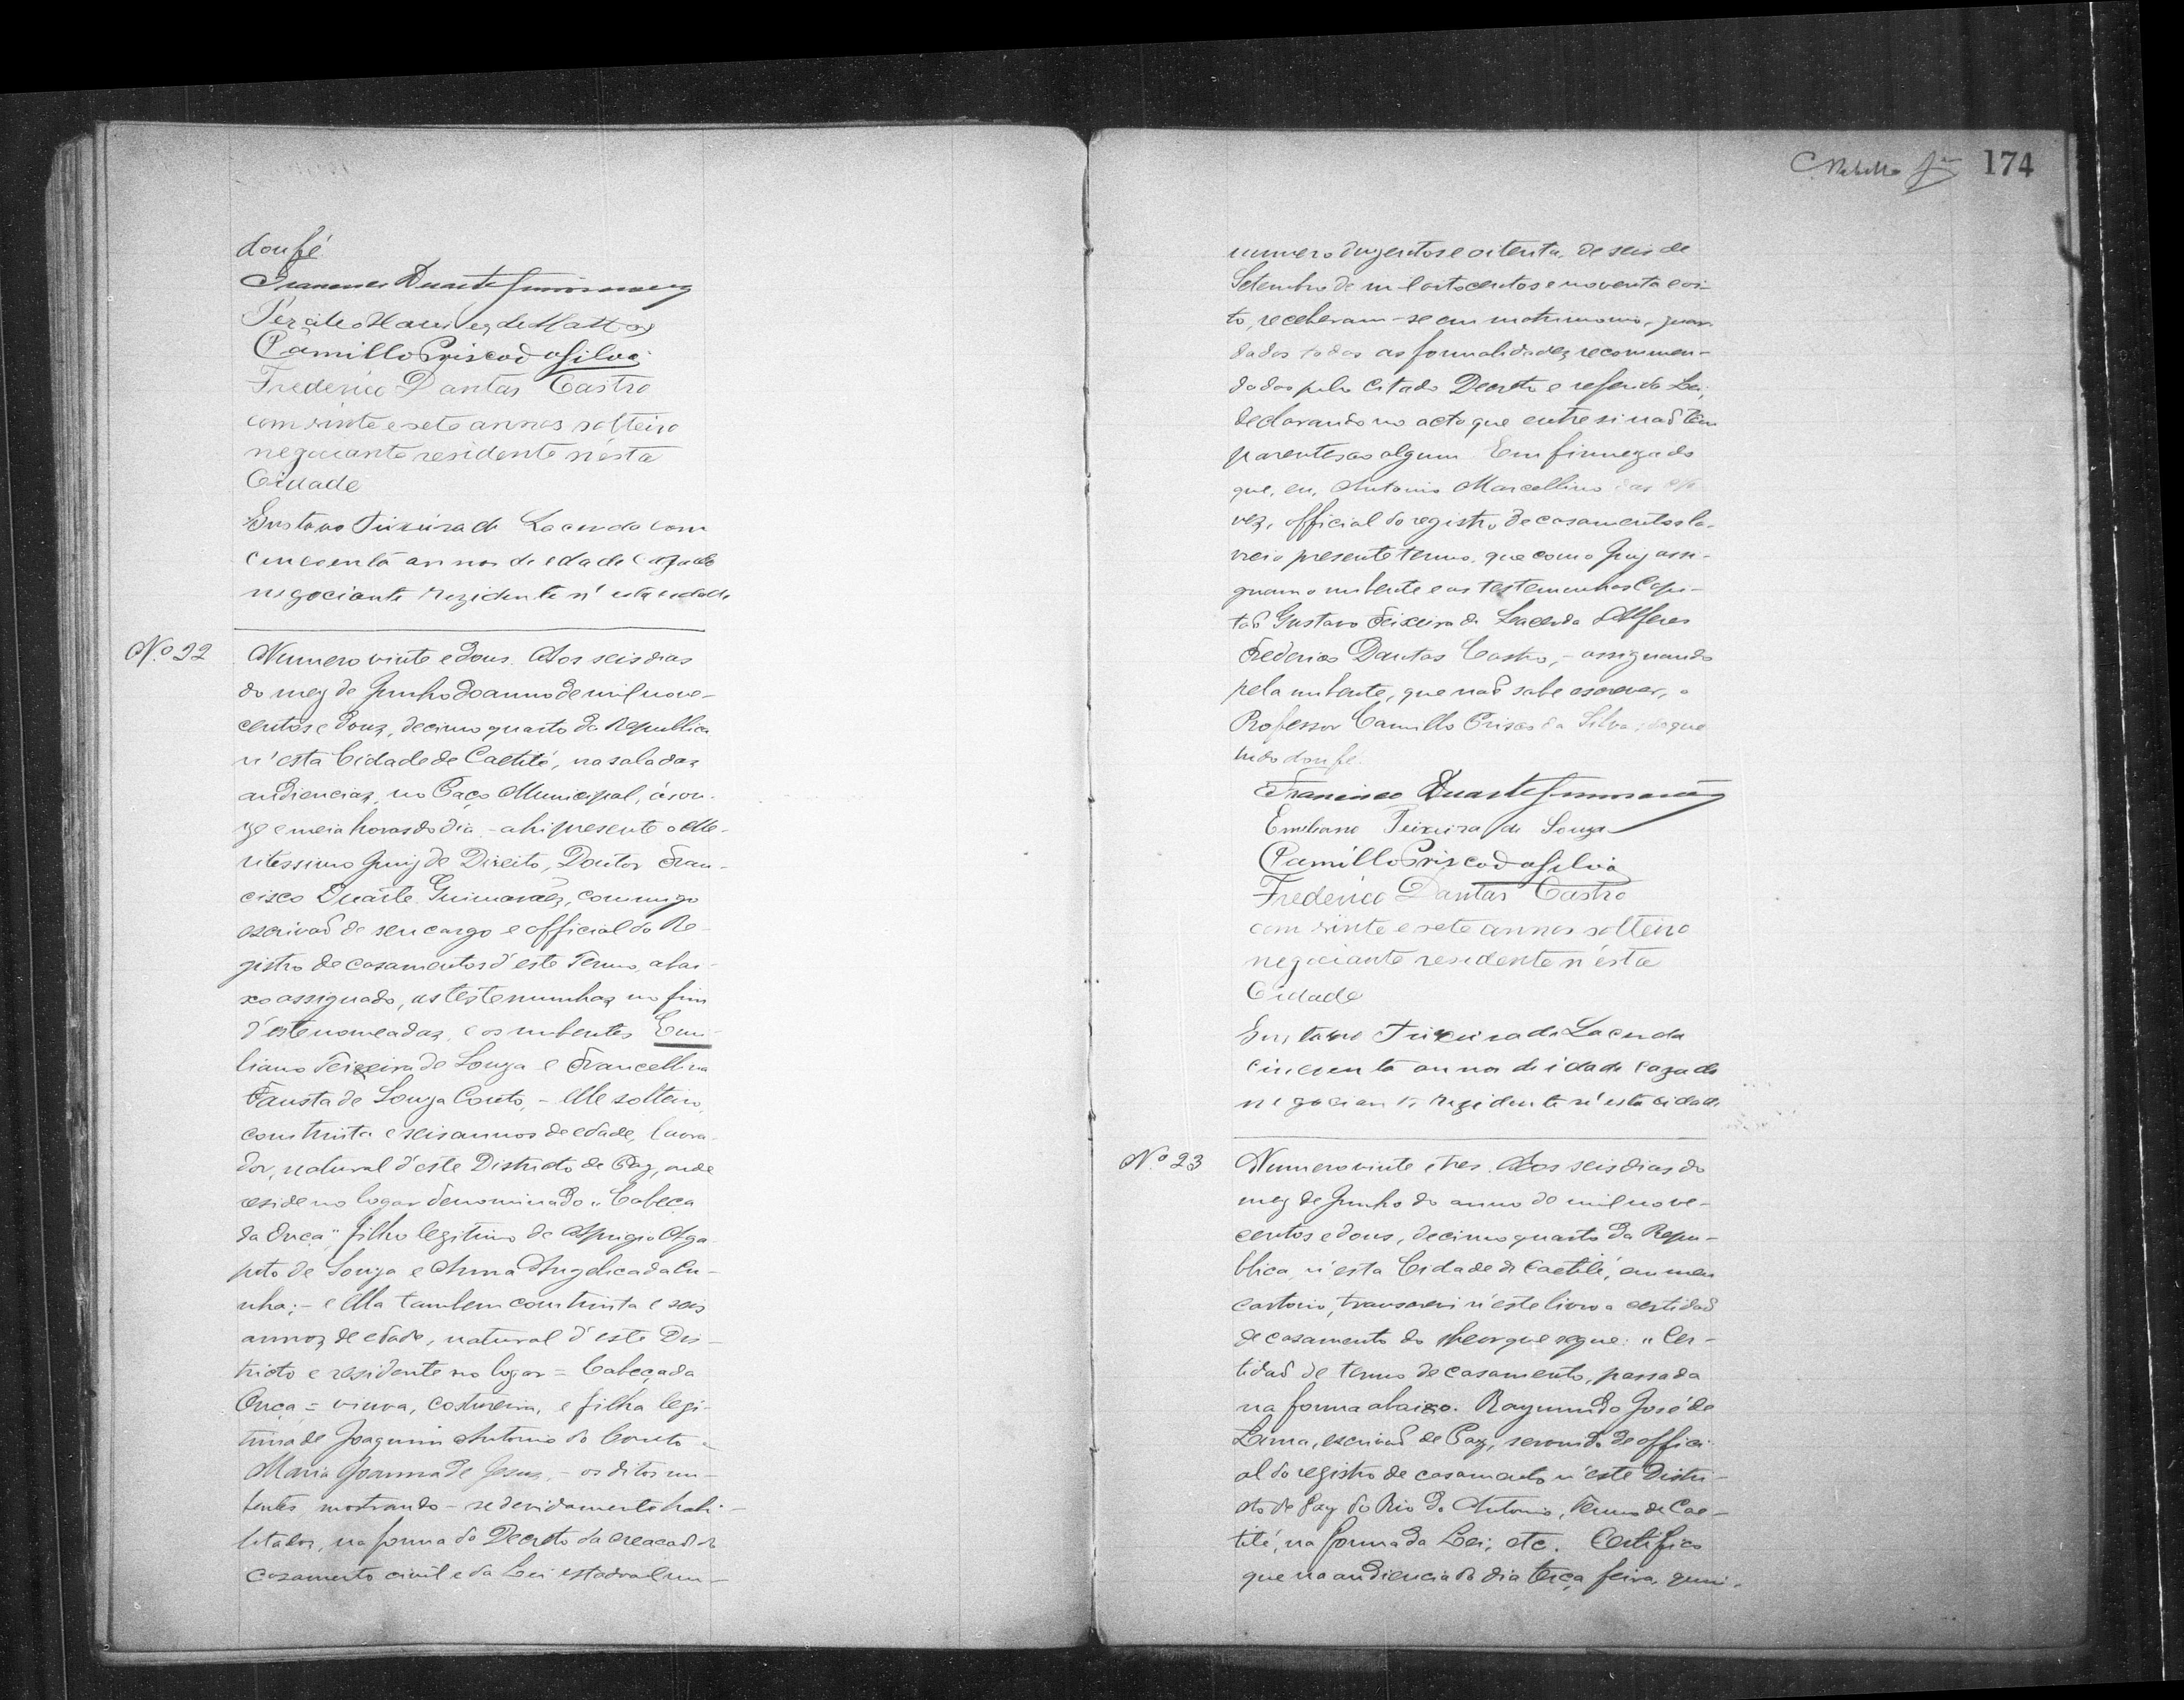 dou fé.
Francisco Duarte Guimarães
Camillo Prisco da Silva
Frederico Dantas Castro
com vinte e sete annos solteiro
negociante residente n'ésta
Cidade
Gustavo Teixeira de Lacerda com
cincoenta annos de edade cazado
negociante rezidente n'esta cidade
Nº 22
Numero vinte e dous. Aos seis dias
do mez de Junho do anno de mil nove-
centos e dous, decimo quarto da Republica
n'esta Cidade de Caetité, na sala das
audiencias, no Paço Municipal, ás on-
ze e meia horas do dia, - ahi presente o Me-
ritissimo Juiz de Direito, Doutor Fran-
cisco Duarte Guimarães, commigo
escrivaõ de seu cargo e official do Re-
gistro de casamentos d'este Termo, abai-
xo assignado, as testemunhas no fim
d'este nomeadas, e os nubentes Emi-
liano Teixeira de Souza e Francellina
Fausta de Souza Couto, - elle solteiro,
com trinta e seis annos de edade, lavra-
dor, natural d'este Districto de Paz, onde
reside no logar denominado "Cabeça
da Onça" filho legitimo de Aprigio Aga-
pito de Souza e Anna Angelica da Cu-
nha; - e ella tambem com trinta e seis
annos de edade, natural d'este Dis-
tricto e residente no logar = Cabeça da
Onça = viuva, costureira, e filha legi-
tima de Joaquim Antonio do Couto e
Maria Joanna de Jesus, - os ditos nu-
bentes mostrando-se devidamente habi-
litados, na forma do Decreto da creacaõ do
casamento civil e da Lei estadoal nu-
174
numero duzentos e oitenta, de seis de
Setembro de mil oitocentos e noventa e oi-
to, receberam-se em matrimonio, guar-
dadas todas as formalidades recommen-
dadas pelo citado Decreto e referida Lei,
declarando no acto que entre si naõ têm
parentesco algum. Em firmeza do
que, eu, Antonio Marcellino das
ves, official do registro de casamentos la-
vrei o presente termo, que com o Juiz assi-
gnam o nubente e as testemunhas Capi-
taõ Gustavo Teixeira de Lacerda e Alferes
Frederico Dantas Castro, - assignando
pela nubente, que naõ sabe escrever, o
Professor Camillo Prisco da Silva; do que
tudo dou fé.
Francisco Duarte Guimarães
Emiliano Teixeira de Souza
Camillo Prisco da Silva
Frederico Dantas Castro
com vinte e sete annos solteiro
negociante residente n'ésta
Cidade
Gustavo Teixeira de Lacerda
cincoenta annos de idade cazado
negociante rezidente n'esta cidade
Nº 23
Numero vinte e tres. Aos seis dias do
mez de Junho do anno de mil nove-
centos e dous, decimo quarto da Repu-
blica, n'esta Cidade de Caetité, em meu
cartorio, transcrevi n'este livro a certidaõ
de casamento do theor que segue: "Cer-
tidaõ de termo de casamento, passada
na forma abaixo. Raymundo José de
Lima, escrivaõ de Paz, servindo de offici-
al do registro de casamento n'este Distri-
cto de Paz do Rio do Antonio, Termo de Cae-
tité, na forma da Lei, etc. Certifico
que na audiencia do dia terça feira, quin-